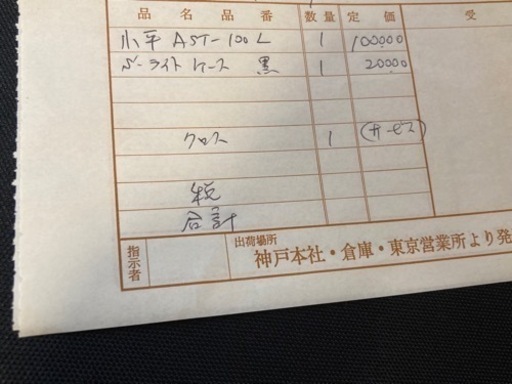 品名品番 数量 定価 受
小平 AST-100L 1 100000
S-ライト ケース 黒 1 20000
クロス 1 (サービス)
税
合計
指示者 出荷場所
神戸本社・倉庫・東京営業所より発